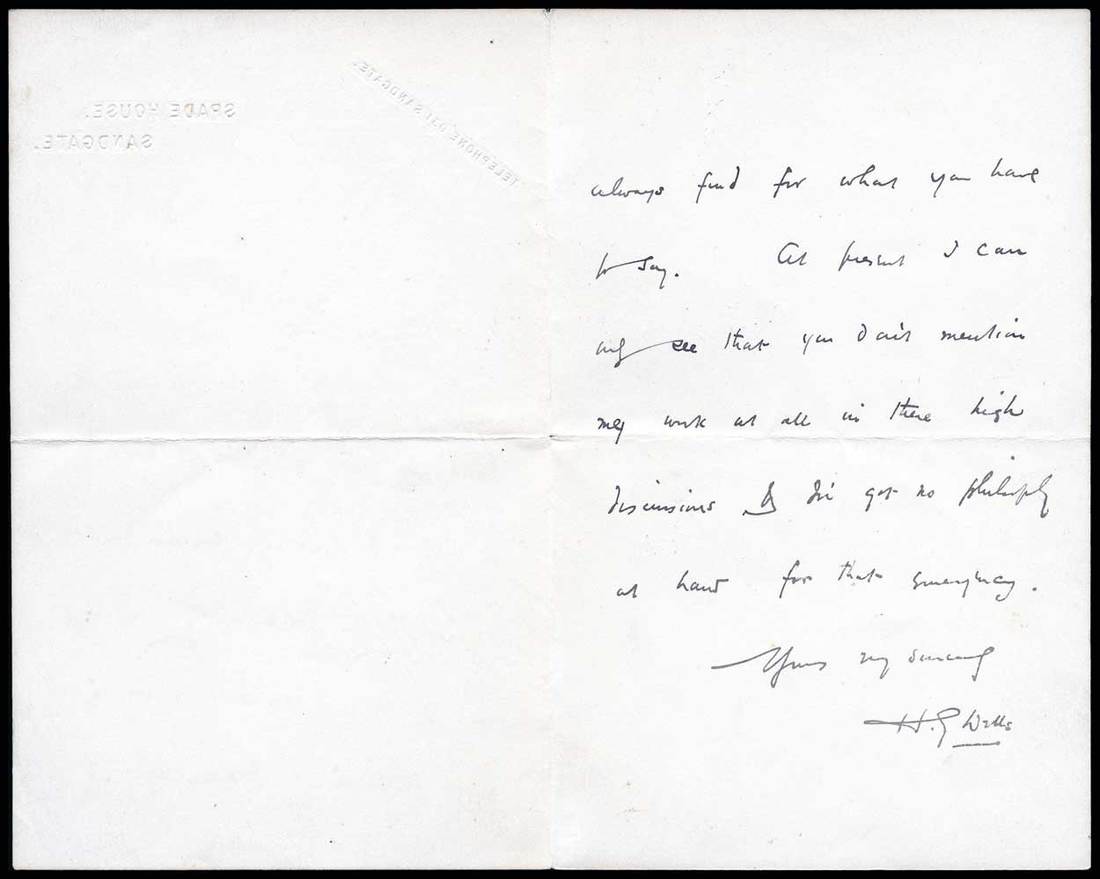 SPADE HOUSE.
SANDGATE.
TELEPHONE SANDGATE.
always find for what you have
to say. At present I can
only see that you don't mention
my work at all in these high
discussions & I've got no philosophy
at hand for that emergency.
Yours very sincerely
H. G Wells